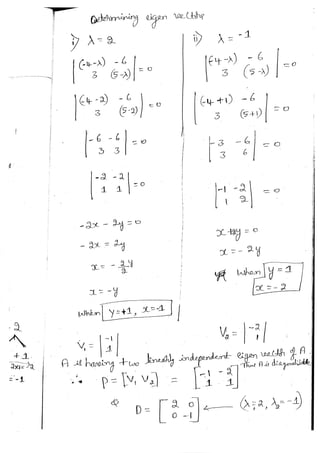 Determining eigen vecthr
i) λ = 2
|(-4-λ) -6|
|3 (5-λ)| = 0
|(-4-2) -6|
|3 (5-2)| = 0
|-6 -6|
|3 3| = 0
|-2 -2|
|1 1| = 0
-2x - 2y = 0
-2x = 2y
x = - 2y/2
x = -y
when y=+1, x=-1
V₁ = |-1|
|1|
ii) λ = -1
|(-4-λ) -6|
|3 (5-λ)| = 0
|(-4+1) -6|
|3 (5+1)| = 0
|-3 -6|
|3 6| = 0
|-1 -2|
|1 2| = 0
x = -2y
when y = 1
x = -2
V₂ = |-2|
|1|
A is having two linearly independent eigen vecthr of A.
that A is
∴ P = [V₁ V₂] = [-1 -2]
[1 1]
D = [2 0] ← (λ₁=2, λ₂=-1)
[0 -1]
2
+1
= -1